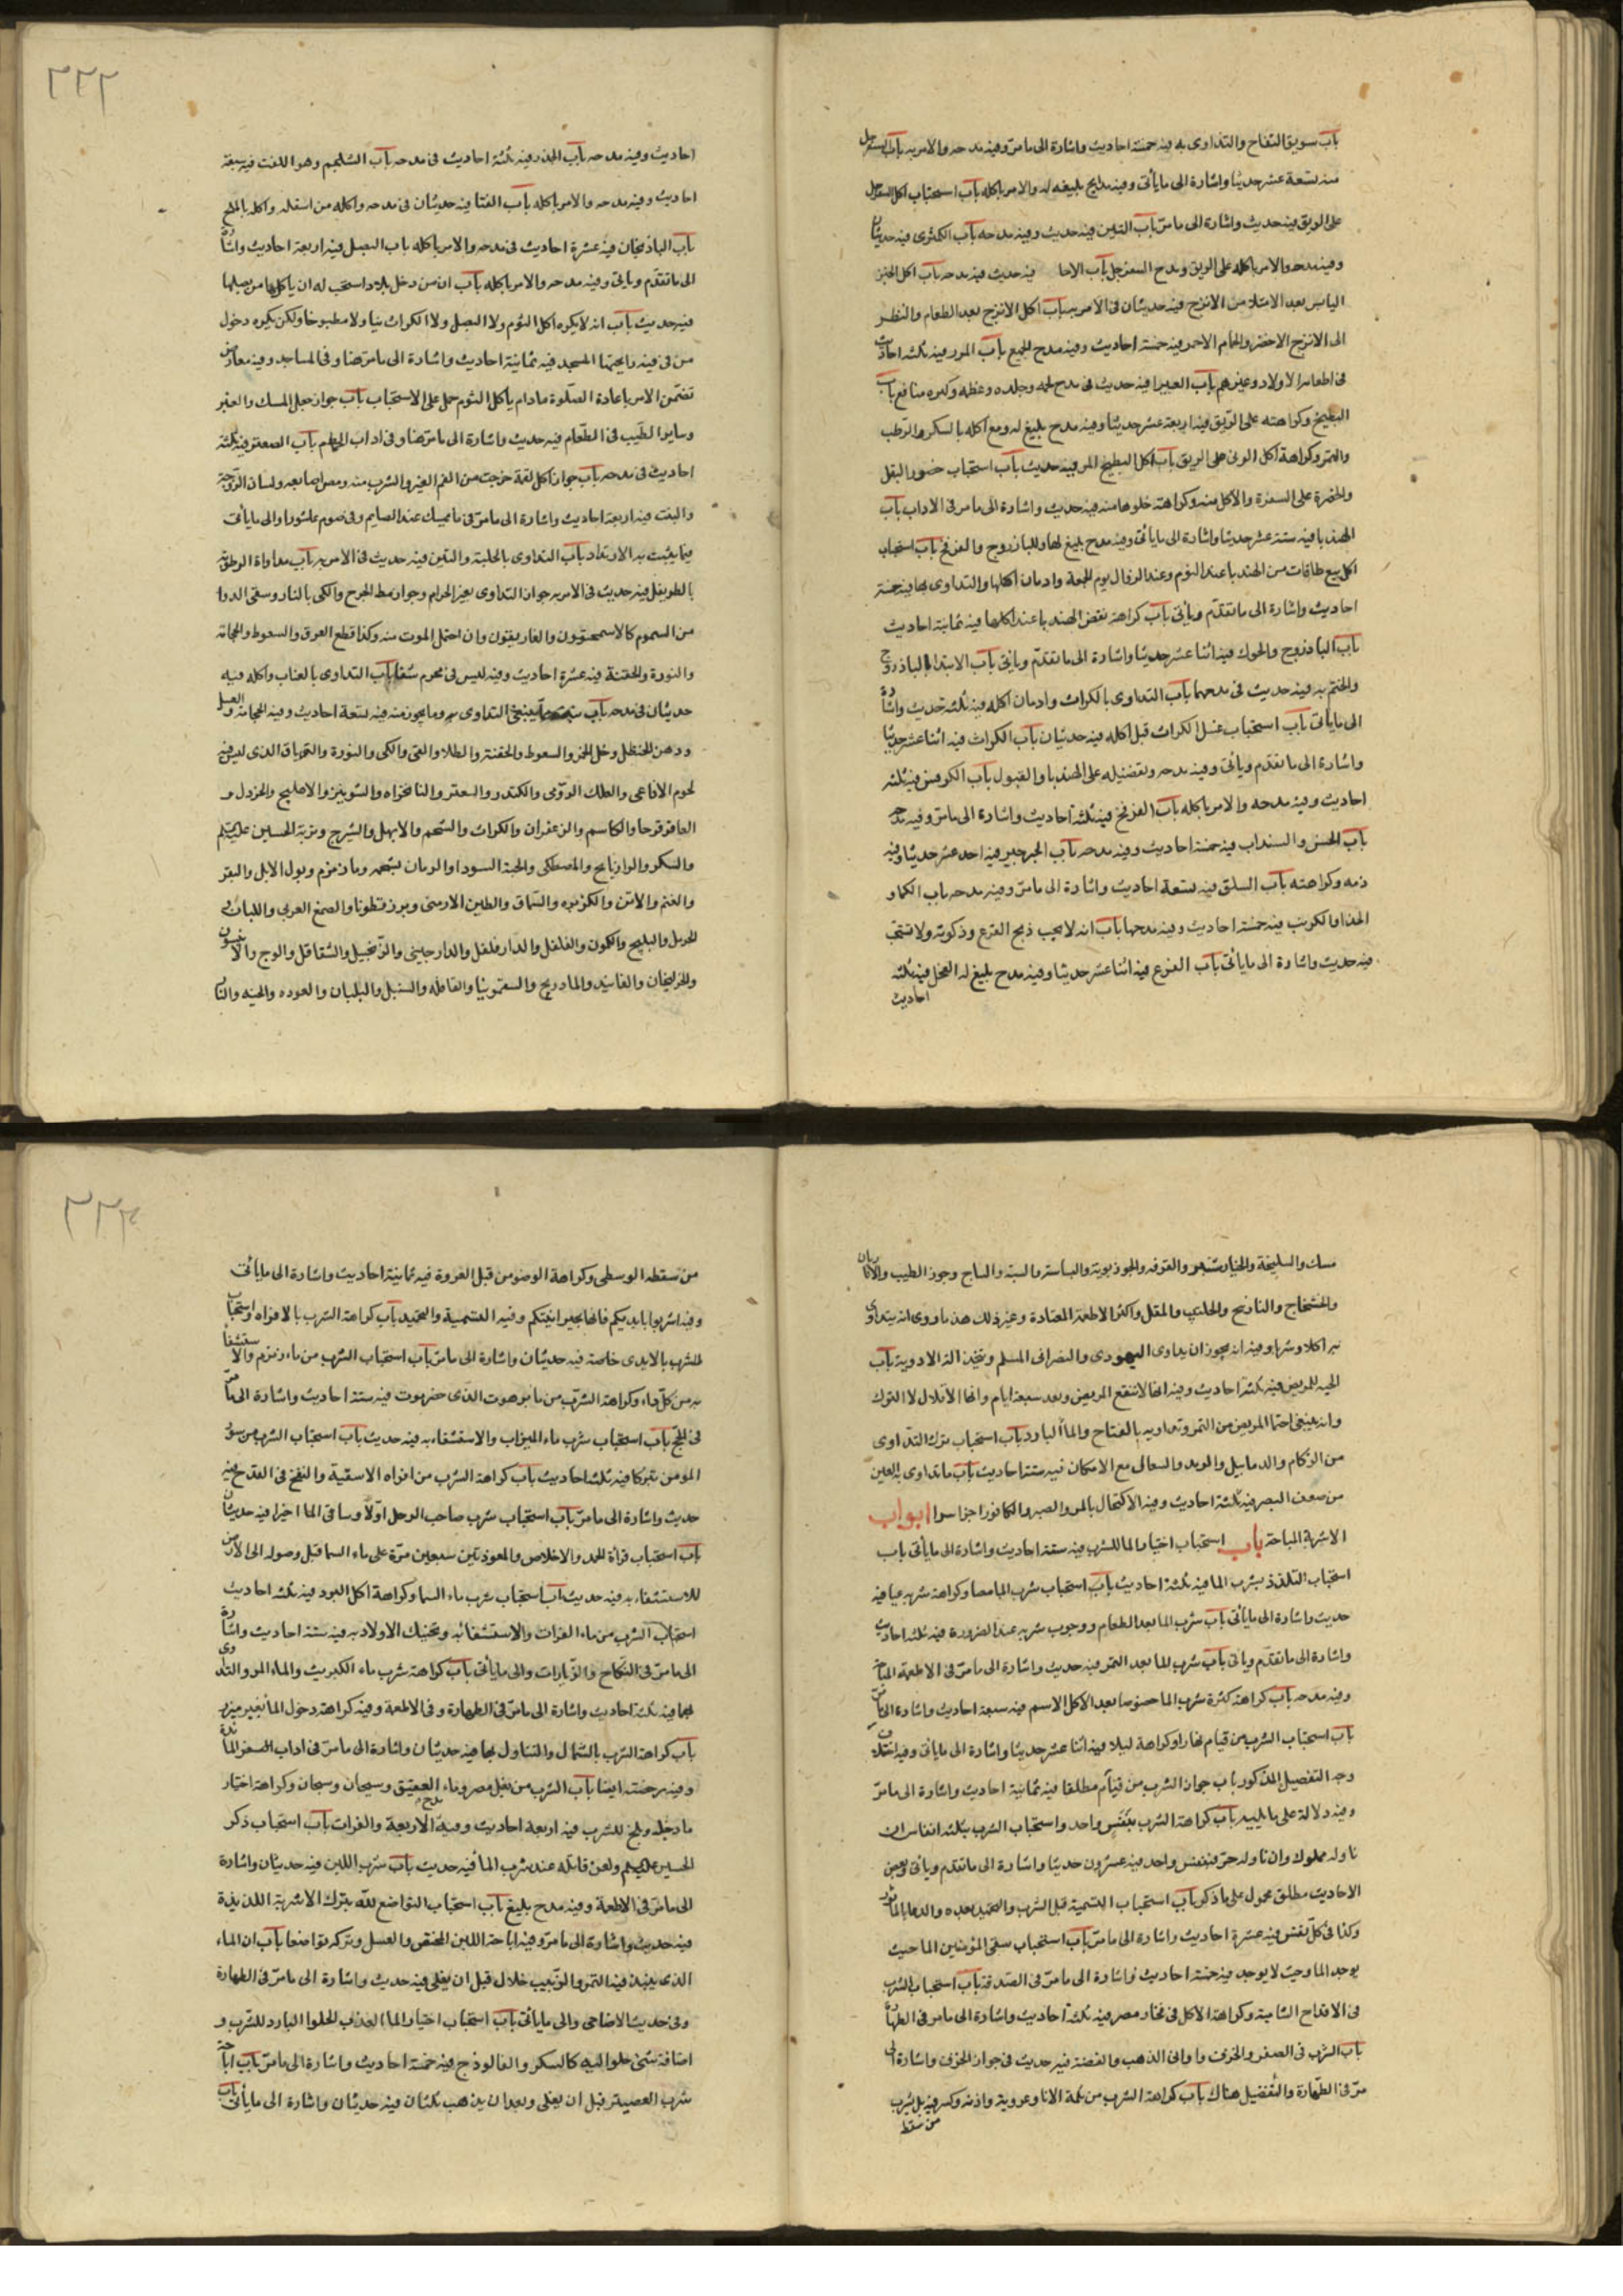 باب سويق التفاح والتداوى به فيه خمسة احاديث واشارة الى ما مرّ وفيه مدحه والامر به باب السفرجل
فيه تسعة عشر حديثا واشارة الى ما يأتى وفيه مدايح بليغه له والامر باكله باب استحباب اكل السفرجل
على الريق فيه حديث واشارة الى ما مرّ باب التين فيه حديث وفيه مدحه باب الكمثرى فيه حديثان
وفيه مدحه والامر باكله على الريق ومدح السفرجل باب الاجا فيه حديث فيه مدحه باب اكل الخبز
اليابس بعد الامتلاء من الاترج فيه حديثان فى الامر به باب اكل الاترج بعد الطعام والنظر
الى الاترج الاخضر والحمام الاحمر فيه خمسة احاديث وفيه مدح للجميع باب الموز فيه ثلثة احاديث
فى اطعامه الاولاد وغيرهم باب الغبيرا فيه حديث فى مدح لحمه وجلده وعظمه وكثره منافع باب
البطيخ وكراهته على الرّيق فيه اربعة عشر حديثا وفيه مدح بليغ له ومع اكله بالسكر والرطب
والتمر وكراهة اكل المرّ على الريق باب اكل البطيخ المر فيه حديث باب استحباب حضور البقل
والخضرة على السفرة والاكل منه وكراهة خلوها منه فيه حديث واشارة الى ما مر فى الاداب باب
الهندبا فيه ستة عشر حديثا واشارة الى ما يأتى وفيه مدح بليغ لها وللباذروج والفرفخ باب استحباب
اكل سبع طاقات من الهندبا عند النوم وعند الزوال يوم الجمعة وادمان اكلها والتداوى بها فيه خمسة
احاديث واشارة الى ما تقدّم ويأتى باب كراهة نفض الهندبا عند اكلها فيه ثمانية احاديث
باب الباذروج والحوك فيه اثنا عشر حديثا واشارة الى ما تقدّم ويأتى باب الابتداء بالباذروج
والختم به فيه حديث فى مدحهما باب التداوى بالكراث وادمان اكله فيه ثلثة حديث واشارة
الى ما يأتى باب استحباب غسل الكراث قبل اكله فيه حديثان باب الكراث فيه اثنا عشر حديثا
واشارة الى ما تقدّم ويأتى وفيه مدحه وتفضيله على الهندبا والبقول باب الكرفس فيه ثلثة
احاديث وفيه مدحه والامر باكله باب الفرفخ فيه ثلثة احاديث واشارة الى ما مرّ وفيه مدحه
باب الخس والسنداب فيه خمسة احاديث وفيه مدحه باب الجرجير فيه احد عشر حديثا وفيه
ذمه وكراهته باب السلق فيه تسعة احاديث واشارة الى ما مرّ وفيه مدحه باب الكماة و
الحزا والكرنب فيه خمسة احاديث وفيه مدحها باب انه لا يجب ذبح القرع وذكوته ولا تستحب
فيه حديث واشارة الى ما يأتى باب القرع فيه اثنا عشر حديثا وفيه مدح بليغ له الفجل فيه ثلثة
احاديث
٢٢٢
احاديث وفيه مدحه باب الجزر وفيه ثلثة احاديث فى مدحه باب الشلجم وهو اللفت فيه سبعة
احاديث وفيه مدحه والامر باكله باب القثا فيه حديثان فى مدحه واكله من اسفله واكله بالملح
باب الباذنجان فيه عشرة احاديث فى مدحه والامر باكله باب البصل فيه اربعة احاديث واشارة
الى ما تقدّم ويأتى وفيه مدحه والامر باكله باب ان من دخل بلادا استحب له ان ياكل من بصلها
فيه حديث باب انه لا يكره اكل الثوم ولا البصل ولا الكراث نيا ولا مطبوخا ولكن يكره دخول
من فى فيه رايحتها المسجد فيه ثمانية احاديث واشارة الى ما مرّ هنا وفى المساجد وفيه معارض
تضمّن الامر باعادة الصلوة مادام ياكل الثوم حمل على الاستحباب باب جواز جعل المسك والعنبر
وساير الطيب فى الطعام فيه حديث واشارة الى ما مرّ هنا وفى اداب الحمّام باب الصعتر فيه ثلثة
احاديث فى مدحه باب جواز اكل لقمة خرجت من الفم الغير والشرب منه ومص اصابعه ولسان الزوجة
والبنت فيه اربعة احاديث واشارة الى ما مرّ فى ما يمسك عنه الصايم وفى صوم عاشورا والى ما يأتى
فيما يثبت به الارتداد باب التداوى بالحلبة والتين فيه حديث فى الامر به باب مداواة الرطوبة
بالطريفل فيه حديث فى الامر به جواز التداوى بغير الحرام وجواز بط الجرح والكى بالنار وسقى الدوا
من السموم كالاسمحيقون والغاريقون وان احتمل الموت منه وكذا قطع العرق والسعوط والحجامة
والنورة والحقنة فيه عشرة احاديث وفيه ليس فى محرم شفا باب التداوى بالعناب واكله فيه
حديثان فى مدحه باب ينبغى التداوى به وما يجوز منه فيه تسعة احاديث وفيه الحجامة والعسل
ودهن الحنظل وخل الخمر والسعوط والحقنة والطلاء والقى والكى والنورة والترياق الذى ليس فيه
لحوم الافاعى والعلك الرّومى والكندر والسعتر والنانخواه والشونيز والاهليلج والخردل و
العاقرقرحا والكاسم والزعفران والكراث والشحم والابهل والشيرج وتربة الحسين عليه السلم
والسكر والرازيانج والمصطكى والحبة السودا والرمان بشحمه وماء زمزم وبول الابل والبقر
والغنم والاتن والكزبره والسّماق والطين الارمنى وبزرقطونا والصمغ العربى واللبان و
الحرمل والبليلج والكمون والفلفل والدّارفلفل والدارجينى والزّنجبيل والشقاقل والوج والانيسون
والخرلنجان والفانيذ والمادريح والسقمونيا والقاقله والسنبل والبلبان والعوده والحبه والنا
مسك والسليخة والخيارشنبر والقرفه والجوزبويه والبساسه والسبته والساج وجوز الطيب والاناريان
والخشخاش والنارنج والحلتيت والمقل واكثر الاطعمة المعتادة وغير ذلك هذه ما روى انه يتداوى
به اكلا وشربا وفيه انه يجوز ان يداوى اليهودى والنصرانى المسلم ويتخذ له الادوية باب
الحميه للمريض فيه ثلثة احاديث وفيه انها لا تنفع المريض وبعد سبعة ايام وانها الاقلال لا الترك
وانه ينبغى احتما المريض من التمر وتداويه بالتفاح والماء البارد باب استحباب ترك التداوى
من الزكام والدماميل والرمد والسعال مع الامكان فيه ستة احاديث باب ما تداوى به العين
من ضعف البصر فيه ثلثة احاديث وفيه الاكتحال بالمر والصبر والكافور اجزا سوا ابواب
الاشربة المباحة باب استحباب اختيار الما للشرب فيه ستة احاديث واشارة الى ما يأتى باب
استحباب التلذذ بشرب الما فيه ثلثة احاديث باب استحباب شرب الما مصا وكراهة شربه عبا فيه
حديث واشارة الى ما يأتى باب شرب الما بعد الطعام ووجوب شربه عند الضرورة فيه ثلثة احاديث
واشارة الى ما تقدّم ويأتى باب شرب الما بعد التمر فيه حديث واشارة الى ما مرّ فى الاطعمة المباحة
وفيه مدحه باب كراهة كثرة شرب الما خصوصا بعد الاكل الاسم فيه سبعة احاديث واشارة الى ما مرّ
باب استحباب الشرب من قيام نهارا وكراهة ليلا فيه اثنا عشر حديثا واشارة الى ما يأتى وفيه اختلاف
وجه التفصيل المذكور باب جواز الشرب من قيام مطلقا فيه ثمانية احاديث واشارة الى ما مرّ
وفيه دلالة على ما يليه باب كراهة الشرب بنَفَس واحد واستحباب الشرب بثلثه انفاس ان
ناوله مملوك وان ناوله حرّ فبنفس واحد فيه عشرون حديثا واشارة الى ما تقدم ويأتى وبعض
الاحاديث مطلق محمول على ما ذكر باب استحباب التسمية قبل الشرب والتحميد بعده والدعا بالماثور
وكذا فى كلّ نفس فيه عشرة احاديث واشارة الى ما مرّ باب استحباب سقى المؤمنين الما حيث
يوجد الما وحيث لا يوجد فيه خمسة احاديث واشارة الى ما مرّ فى الصّدقة باب استحباب الشرب
فى الاقداح الشامية وكراهة الاكل فى فخار مصر فيه ثلثة احاديث واشارة الى ما مر فى الطهارة
باب الشرب فى الصفر والخزف واوانى الذهب والفضة فيه حديث فى جواز الخزف واشارة الى
مرّ فى الطهارة والتفضيل هناك باب كراهة الشرب من ثلمة الانا وعروته واذنه وكسر فيه بل يشرب
من سقط
٢٢٣
من شفته الوسطى وكراهة الوضوء من قبل العروة فيه ثمانية احاديث واشارة الى ما يأتى
وفيه اشربوا بايديكم فانها خير انيتكم وفيه التسمية والتحميد باب كراهة الشرب بالافواه واستحباب
الشرب بالايدى خاصة فيه حديثان واشارة الى ما مرّ باب استحباب الشرب من ماء زمزم والاستشفا
به من كلّ داء وكراهة الشرب من ماء برهوت الذى حضرموت فيه ستة احاديث واشارة الى ما مرّ
فى الحجّ باب استحباب شرب ماء الميزاب والاستشفاء به فيه حديث باب استحباب الشرب من سؤر
المؤمن تبركا فيه ثلثة احاديث باب كراهة الشرب من افواه الاسقية والنفخ فى القدح فيه
حديث واشارة الى ما مرّ باب استحباب شرب صاحب الرحل اوّلا وساقى الما اخيرا فيه حديثان
باب استحباب قرأة الحمد والاخلاص والمعوذتين سبعين مرّة على ماء السما قبل وصوله الى الارض
للاستشفاء به فيه حديث باب استحباب شرب ماء السما وكراهة اكل البرد فيه ثلثة احاديث
استحباب الشرب من ماء الفرات والاستشفائه وتحنيك الاولاد به فيه ستة احاديث واشارة
الى ما مرّ فى النكاح والزيارات والى ما يأتى باب كراهة شرب ماء الكبريت والماء المر والتداوى
بهما فيه ثلثة احاديث واشارة الى ما مرّ فى الطهارة وفى الاطعمة وفيه كراهة دخول الما بغير ميزر
باب كراهة الشرب بالشمال والتناول بها فيه حديثان واشارة الى ما مرّ فى اداب السفر المائدة
وفيه رخصة ايضا باب الشرب من نيل مصر وماء العقيق وسيحان وجيحان وكراهة اختيار
ماء دجلة وبلخ للشرب فيه اربعة احاديث وفيه مدح الاربعة والفرات باب استحباب ذكر
الحسين عليه السلم ولعن قاتله عند شرب الما فيه حديث باب شرب اللبن فيه حديثان واشارة
الى ما مرّ فى الاطعمة وفيه مدح بليغ باب استحباب التواضع لله بترك الاشربة اللذيذة
فيه حديث واشارة الى ما مرّ وفيه اباحة اللبن المخيض والعسل وتركه تواضعا باب ان الماء
الذى ينبذ فيه التمر والزّبيب حلال قبل ان يغلى فيه حديث واشارة الى ما مرّ فى الطهارة
وفى حديث الاضاحى والى ما يأتى باب استحباب اختيار الماء العذب الحلو البارد للشّرب و
اضافة شئ حلو اليه كالسكر والفالوذج فيه خمسة احاديث واشارة الى ما مرّ باب اباحة
شرب العصير قبل ان يغلى وبعد ان يذهب ثلثان فيه حديثان واشارة الى ما يأتى باب